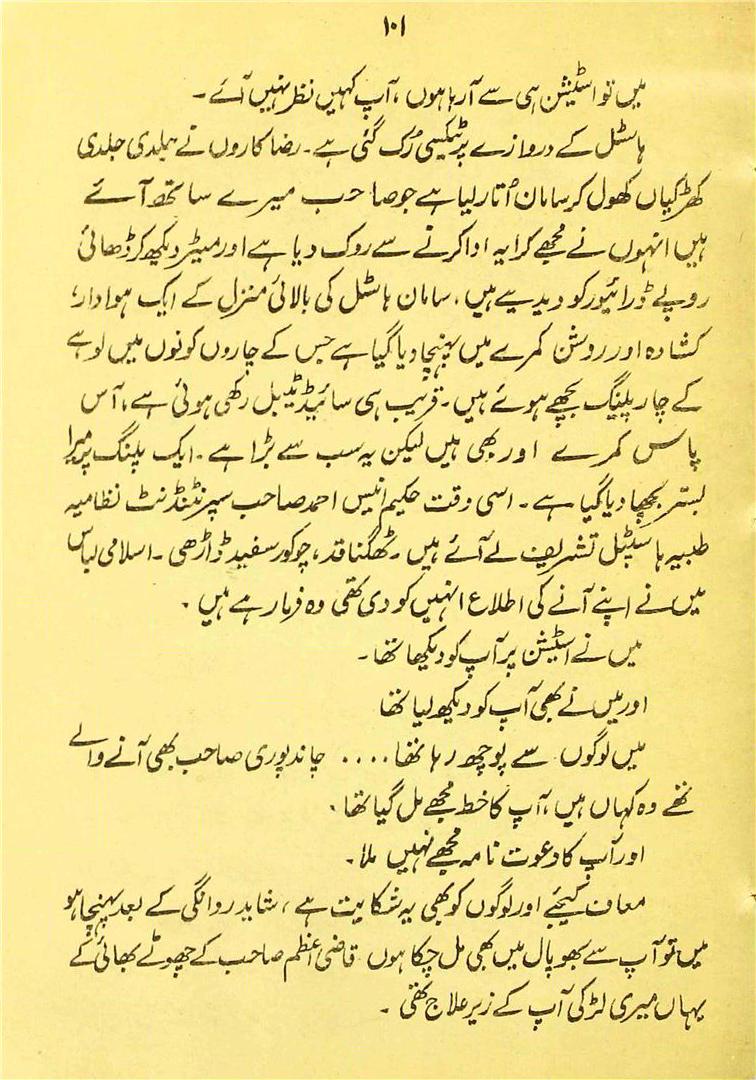 ۱۰۱
میں تو اسٹیشن ہی سے آرہا ہوں ، آپ کہیں نظر نہیں آئے ۔
ہاسٹل کے دروازے پر ٹیکسی رُک گئی ہے ۔ رضا کاروں نے جلدی جلدی
کھڑکیاں کھول کر سامان اُتار لیا ہے جو صاحب میرے ساتھ آئے
ہیں انہوں نے مجھے کرایہ ادا کرنے سے روک دیا ہے اور میٹر دیکھ کر ڈھائی
روپے ڈرائیور کو دیدیے ہیں ۔ سامان ہاسٹل کی بالائی منزل کے ایک ہوادار،
کشادہ اور روشن کمرے میں پہنچا دیا گیا ہے جس کے چاروں کونوں میں لوہے
کے چار پلینگ بچھے ہوئے ہیں ۔ قریب ہی سائیڈ ٹیبل رکھی ہوئی ہے ، آس
پاس کمرے اور بھی ہیں لیکن یہ سب سے بڑا ہے ۔ ایک پلنگ پر میرا
بستر بچھا دیا گیا ہے ۔ اسی وقت حکیم انیس احمد صاحب سپرنٹنڈنٹ نظامیہ
طبیہ ہاسپٹل تشریف لے آئے ہیں ۔ ٹھگنا قد ، چوکور سفید ڈاڑھی ۔ اسلامی لباس
میں نے اپنے آنے کی اطلاع انہیں کو دی تھی وہ فرما رہے ہیں ۔
میں نے اسٹیشن پر آپ کو دیکھا تھا ۔
اور میں نے بھی آپ کو دیکھ لیا تھا
میں لوگوں سے پوچھ رہا تھا .... چاند پوری صاحب بھی آنے والے
تھے وہ کہاں ہیں ، آپ کا خط مجھے مل گیا تھا ۔
اور آپ کا دعوت نامہ مجھے نہیں ملا ۔
معاف کیجئے اور لوگوں کو بھی یہ شکایت ہے ، شاید روانگی کے بعد پہنچا ہو
میں تو آپ سے بھوپال میں بھی مل چکا ہوں قاضی اعظم صاحب کے چھوٹے بھائی کے
یہاں میری لڑکی آپ کے زیر علاج تھی ۔